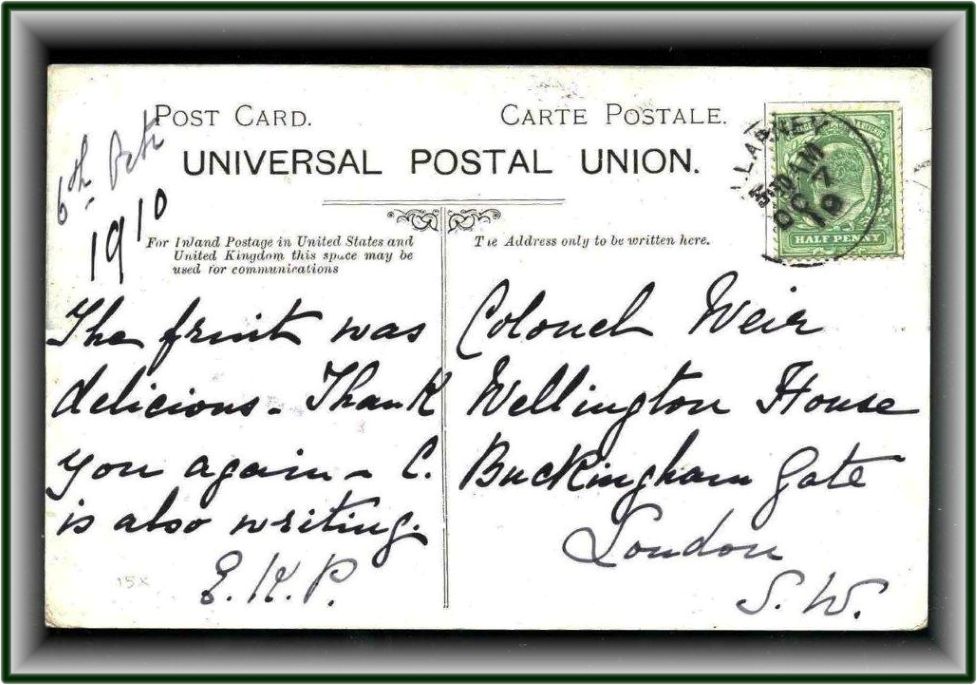 POST CARD.
CARTE POSTALE.
UNIVERSAL POSTAL UNION.
6th Octr
1910
For Inland Postage in United States and
United Kingdom this space may be
used for communications
The Address only to be written here.
5:30 AM
OC 7
10
HALF PENNY
The fruit was
delicious - Thank
you again - C.
is also writing.
E.K.P.
15x
Colonel Weir
Wellington House
Buckingham Gate
London
S.W.